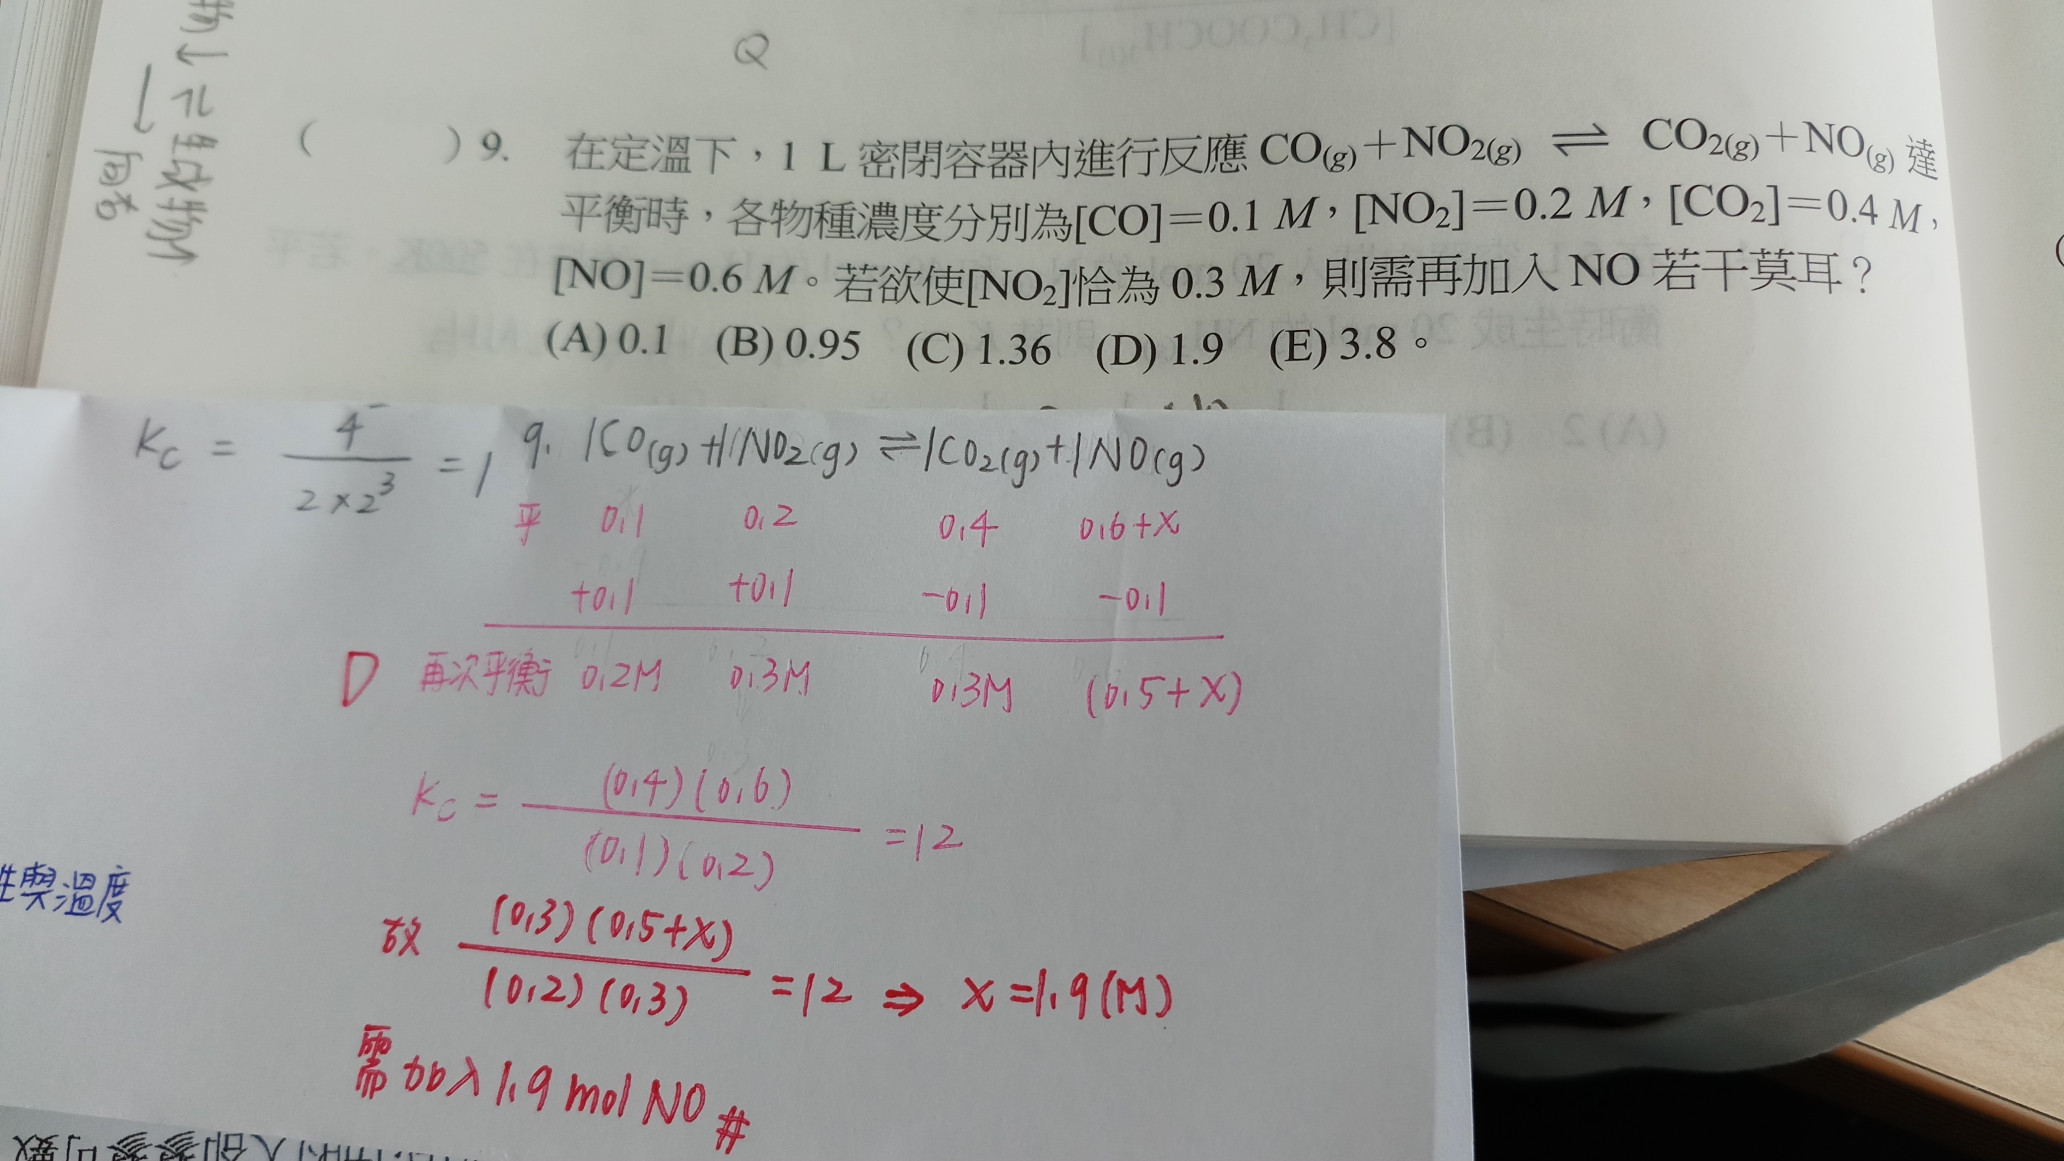 物↓ ⇌ 生成物↑
→ 向右
Q
( ) 9. 在定溫下，1 L 密閉容器內進行反應 CO(g)＋NO2(g) ⇌ CO2(g)＋NO(g) 達
平衡時，各物種濃度分別為[CO]＝0.1 M，[NO2]＝0.2 M，[CO2]＝0.4 M，
[NO]＝0.6 M。若欲使[NO2]恰為 0.3 M，則需再加入 NO 若干莫耳？
(A) 0.1 (B) 0.95 (C) 1.36 (D) 1.9 (E) 3.8。
Kc = 4 / 2×2³ = 1
9. 1CO(g)+1NO2(g)⇌1CO2(g)+1NO(g)
平 0.1 0.2 0.4 0.6+x
+0.1 +0.1 -0.1 -0.1
D 再次平衡 0.2M 0.3M 0.3M (0.5+x)
Kc = (0.4)(0.6) / (0.1)(0.2) = 12
故 (0.3)(0.5+x) / (0.2)(0.3) = 12 ⇒ x = 1.9(M)
需加入 1.9 mol NO #
與溫度